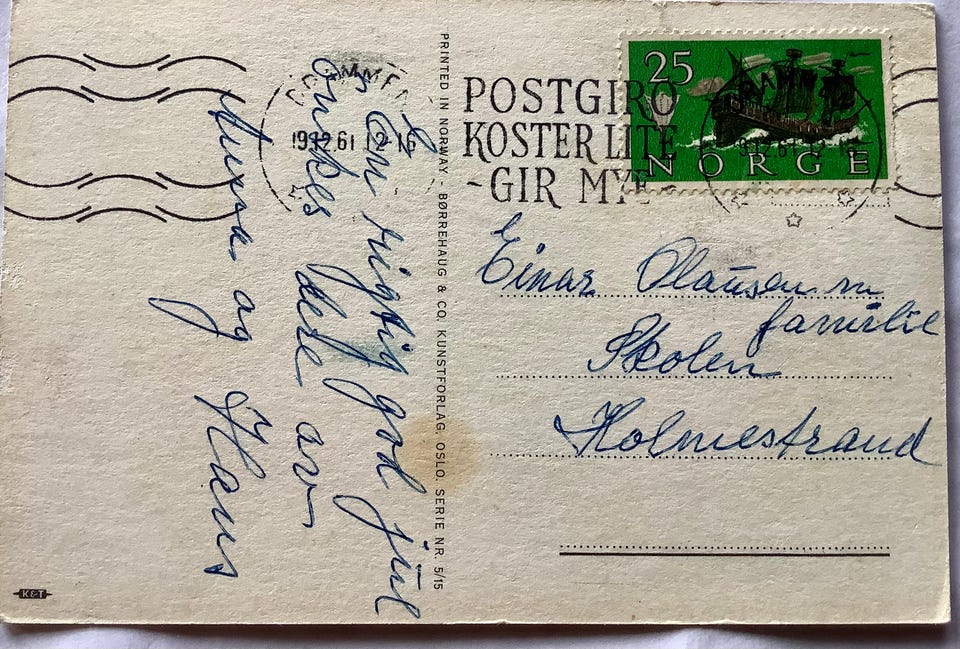 En rigtig god jul
ønskes dere av
og Hans
DRAMMEN
19.12.61 12-16
PRINTED IN NORWAY - BØRREHAUG & CO. KUNSTFORLAG. OSLO. SERIE NR. 5/15
POSTGIRO
KOSTER LITE
- GIR MYE
25
NORGE
Einar Olausen m
familie
Skolen
Holmestrand
K&T